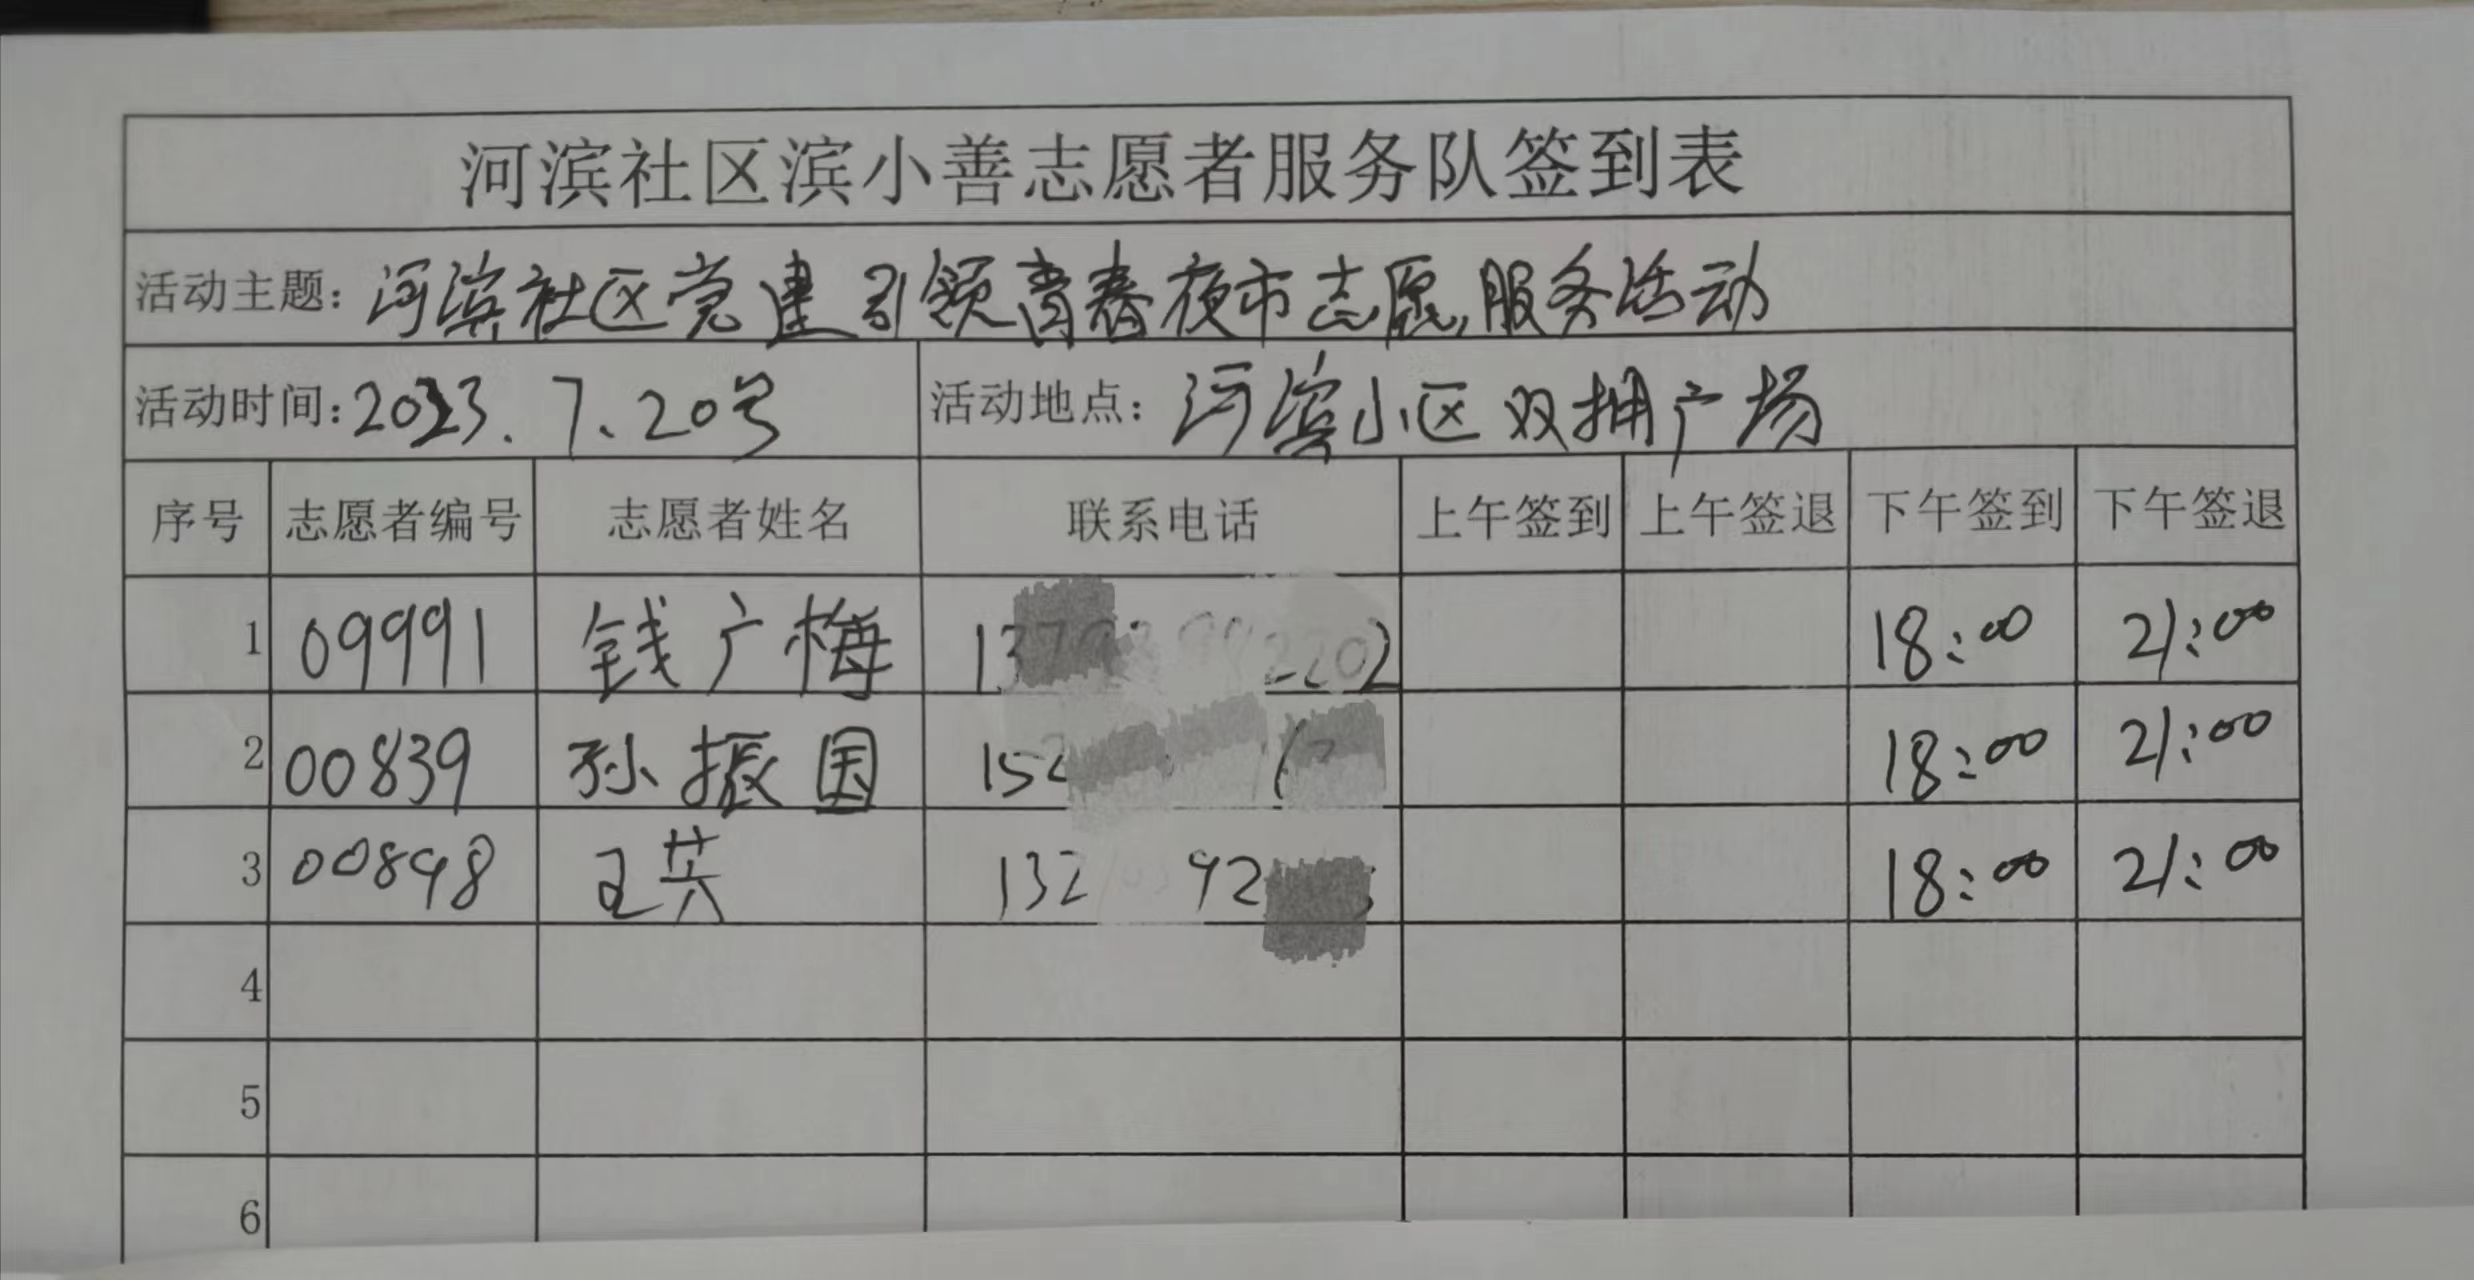 河滨社区滨小善志愿者服务队签到表
活动主题：河滨社区党建引领青春夜市志愿服务活动
活动时间：2023.7.20号 活动地点：河滨小区双拥广场
序号 志愿者编号 志愿者姓名 联系电话 上午签到 上午签退 下午签到 下午签退
1 09991 钱广梅 18:00 21:00
2 00839 孙振国 18:00 21:00
3 00898 王英 18:00 21:00
4
5
6